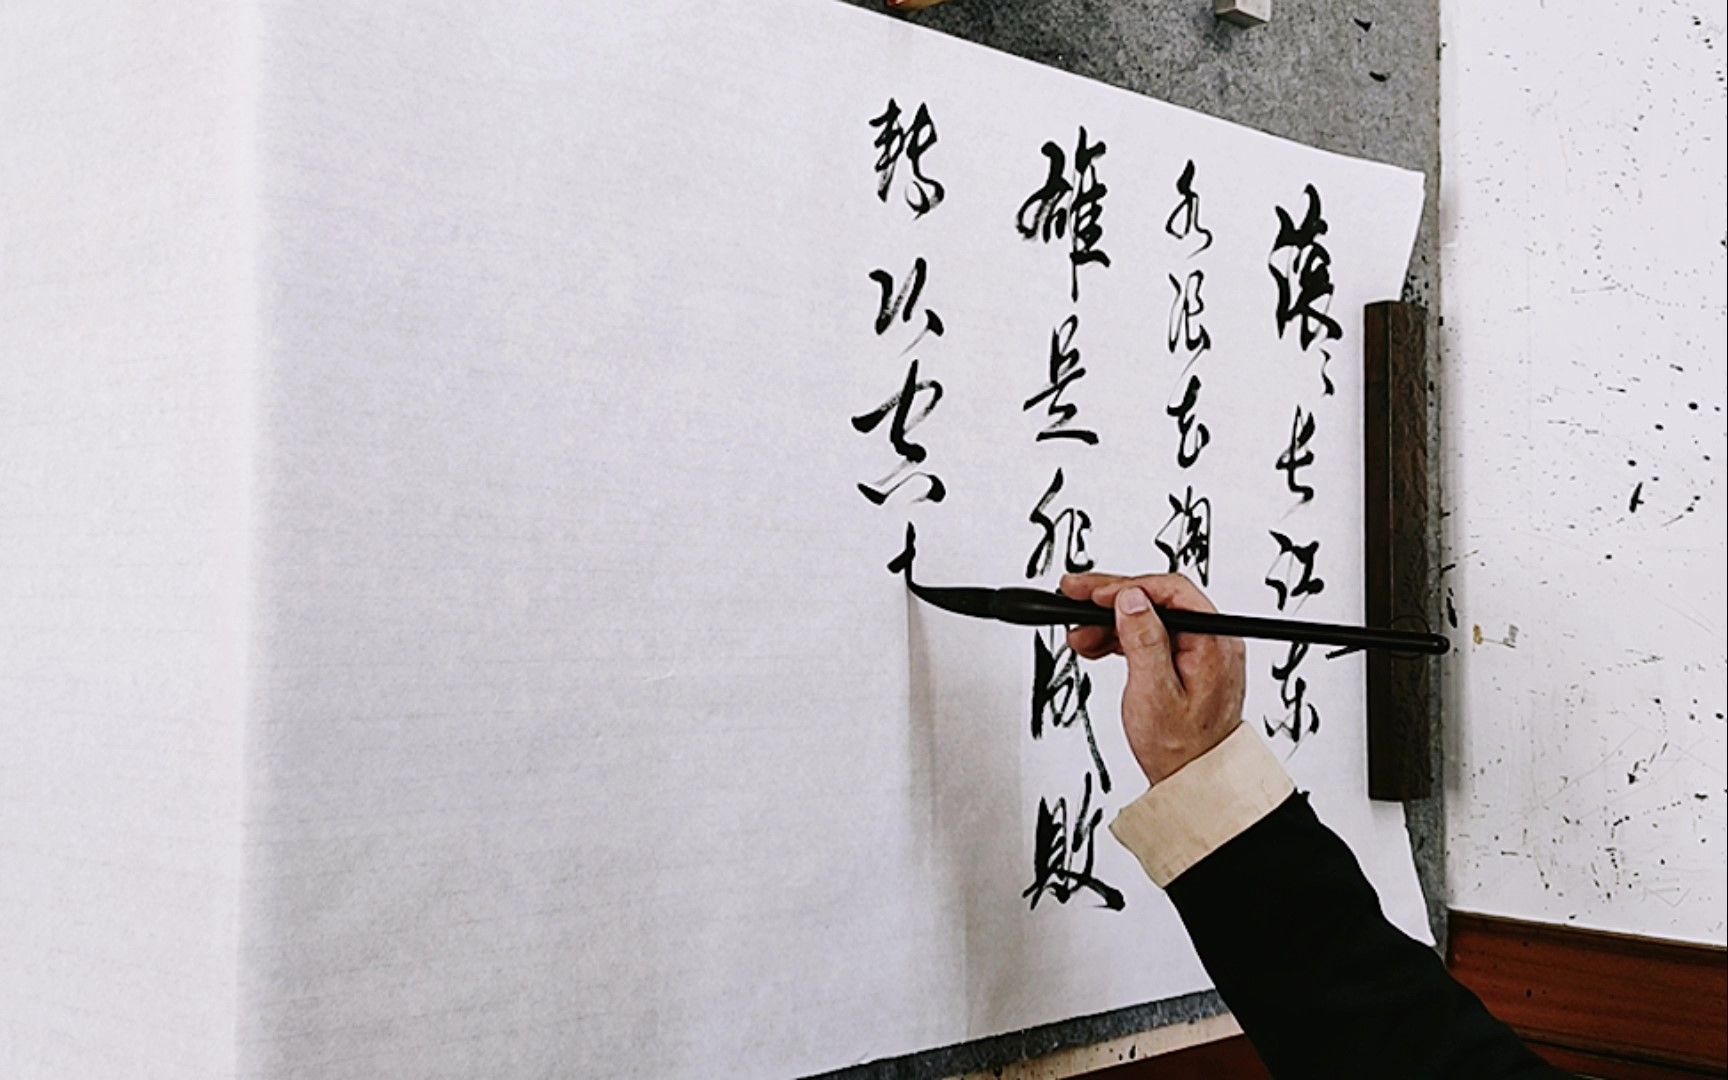 滚〻长江东
水浪花淘
雄是非成敗
转头空